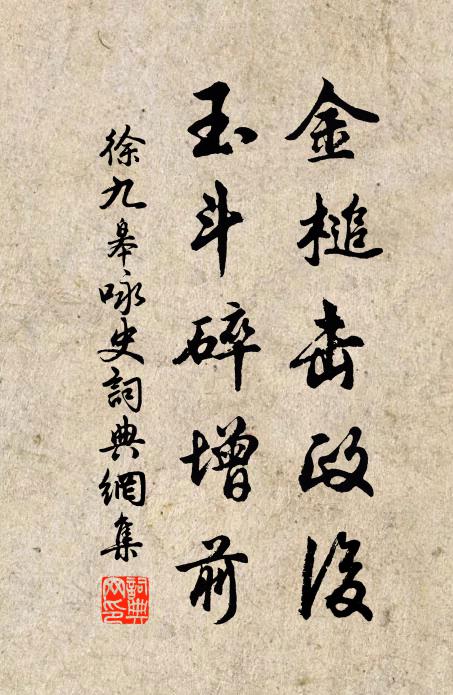 金槌击政後
玉斗碎增前
徐九皋咏史詞典網集
詞典网印